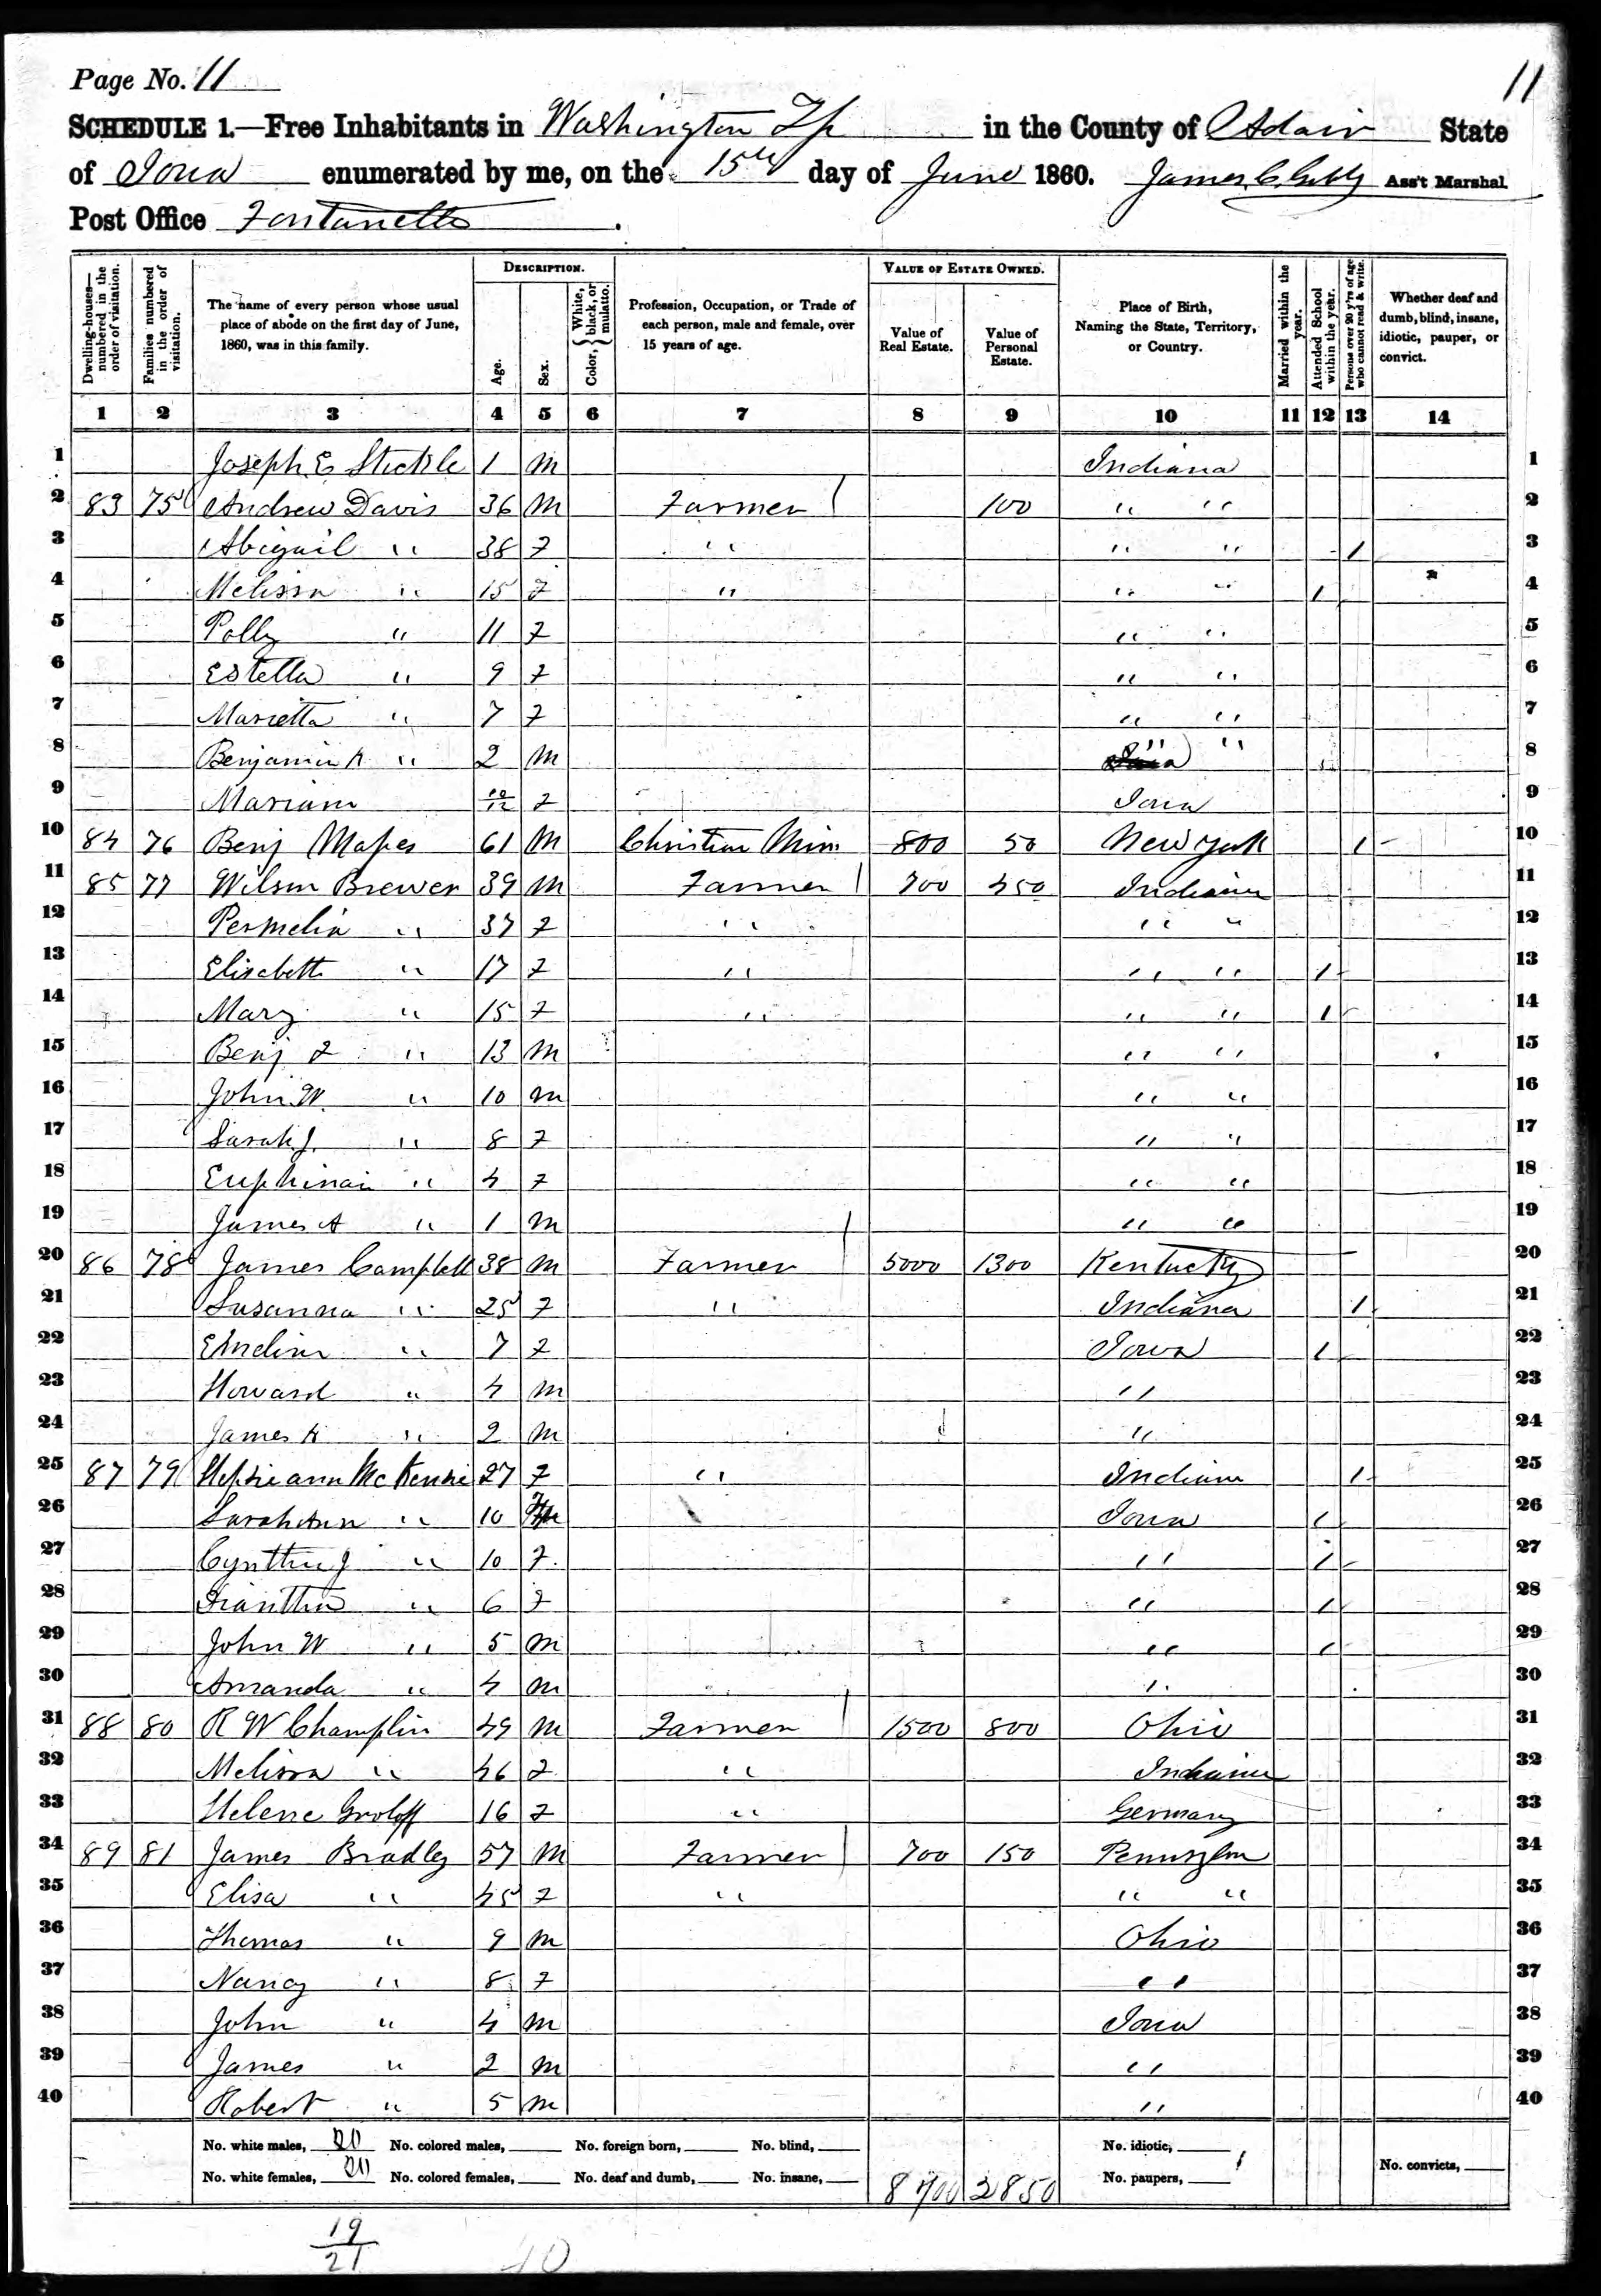 Page No. 11
11
SCHEDULE 1.—Free Inhabitants in Washington Tp in the County of Adair State
of Iowa enumerated by me, on the 15th day of June 1860. James C. Gibbs Ass't Marshal.
Post Office Fontanelle.
Dwelling-houses—numbered in the order of visitation.
Families numbered in the order of visitation.
The name of every person whose usual place of abode on the first day of June, 1860, was in this family.
DESCRIPTION.
Age.
Sex.
Color, { White, black, or mulatto.
Profession, Occupation, or Trade of each person, male and female, over 15 years of age.
VALUE OF ESTATE OWNED.
Value of Real Estate.
Value of Personal Estate.
Place of Birth, Naming the State, Territory, or Country.
Married within the year.
Attended School within the year.
Persons over 20 y'rs of age who cannot read & write.
Whether deaf and dumb, blind, insane, idiotic, pauper, or convict.
1 2 3 4 5 6 7 8 9 10 11 12 13 14
1 Joseph E Stickle 1 m Indiana 1
2 83 75 Andrew Davis 36 m Farmer 100 " " 2
3 Abigail " 38 f " " " 1 3
4 Melissa " 15 f " " " 1 4
5 Polly " 11 f " " 5
6 Estella " 9 f " " 6
7 Marietta " 7 f " " 7
8 Benjamin R " 2 m " " 8
9 Mariam 10/12 f Iowa 9
10 84 76 Benj Mapes 61 m Christian Min 800 50 New York 1 10
11 85 77 Wilson Brewer 39 m Farmer 700 450 Indiana 11
12 Permelia " 37 f " " " 12
13 Elisabeth " 17 f " " " 1 13
14 Mary " 15 f " " " 1 14
15 Benj F " 13 m " " 15
16 John W. " 10 m " " 16
17 Sarah J. " 8 f " " 17
18 " 4 f " " 18
19 James A " 1 m " " 19
20 86 78 James Campbell 38 m Farmer 5000 1300 Kentucky 20
21 Susanna " 25 f " Indiana 1 21
22 Emeline " 7 f Iowa 1 22
23 Howard " 4 m " 23
24 James K " 2 m " 24
25 87 79 Hepsie ann McKensie 27 f " Indiana 1 25
26 Sarah Ann " 10 f Iowa 1 26
27 Cynthia J " 10 f " 1 27
28 " 6 f " 1 28
29 John W " 5 m " 1 29
30 Amanda " 4 m " 30
31 88 80 R W Champlin 49 m Farmer 1500 800 Ohio 31
32 Melissa " 46 f " Indiana 32
33 Helene Groloff 16 f " Germany 33
34 89 81 James Bradley 57 m Farmer 700 150 Pennsylva 34
35 Elisa " 45 f " " " 35
36 Thomas " 9 m Ohio 36
37 Nancy " 8 f " 37
38 John " 4 m Iowa 38
39 James " 2 m " 39
40 Robert " 5 m " 40
No. white males, 20 No. colored males, No. foreign born, No. blind, No. idiotic,
No. white females, 20 No. colored females, No. deaf and dumb, No. insane, 8700 2850 No. paupers, 1 No. convicts,
19
21
40